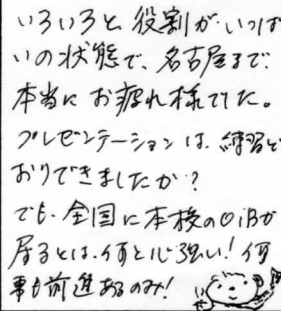 いろいろと、役割が、いっぱ
いの状態で、名古屋まで
本当に お疲れ様でした。
プレゼンテーションは、練習ど
おりできましたか？
でも、全国に本校のOiBが
居るとは、何と心強い！何
事も前進あるのみ！